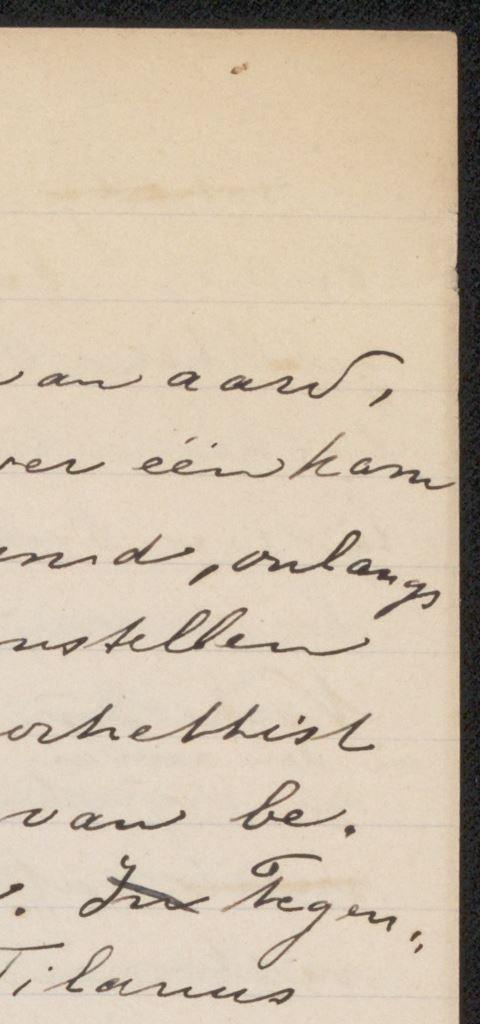 van aard,
ver één kam
end, onlangs
nstellen
orhethist
van be.
. In Tegen„
Tilanus